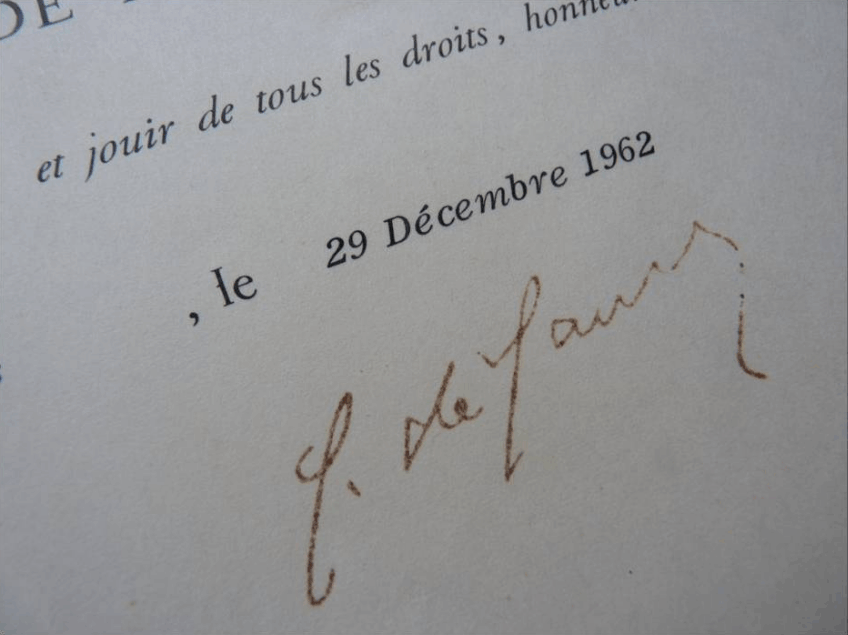 DE
et jouir de tous les droits, honneu
, le 29 Décembre 1962
de